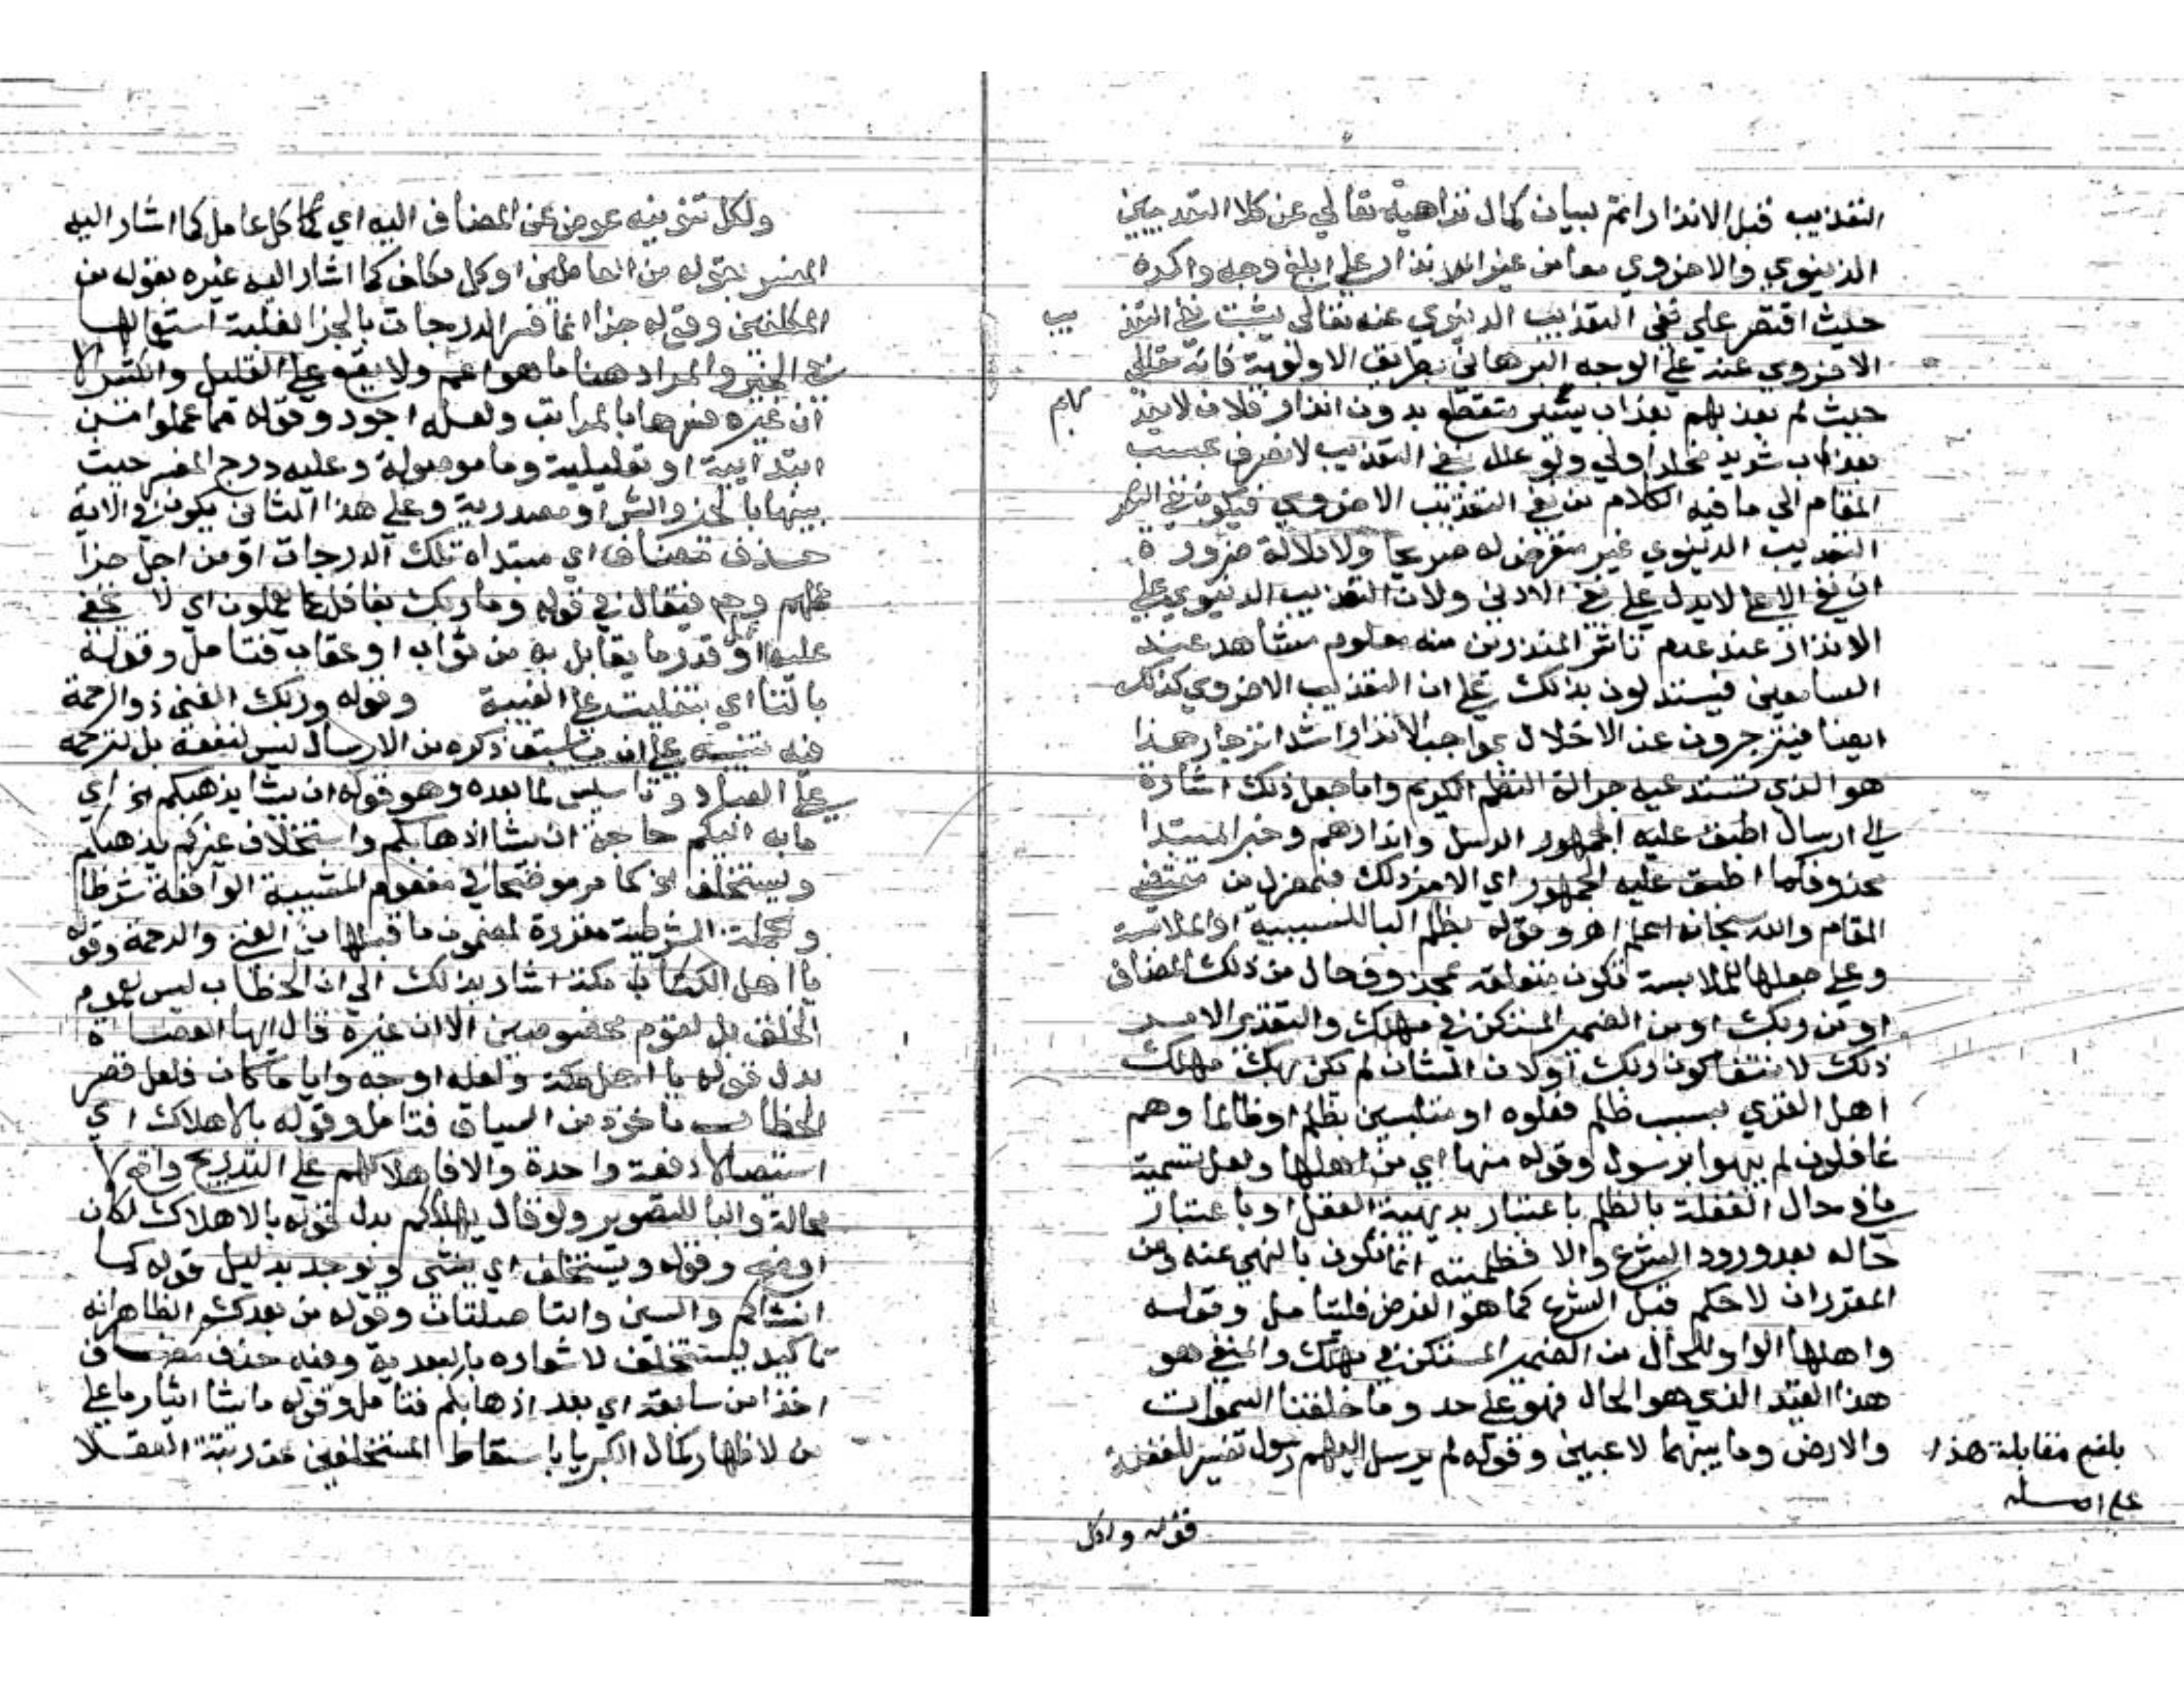 التعذيب قبل الانذار اتم ببيان كمال نزاهته تعالي عن كلا التعذيبين
الدنيوي والاخروي معا من غير انذار علي ابلغ وجه واكده
حيث اقتصر علي نفي التعذيب الدنيوي عنه تعالي ليثبت نفي التعذيب
الاخروي عنه علي الوجه البرهاني بطريق الاولوية فانه تعالي
حيث لم يعذبهم بعذاب يسير منقطع بدون انذار فلان لا يعذبهم
بعذاب شديد مخلد اولي ولو علل نفي التعذيب لانصرف بحسب
المقام الي ما فيه الكلام من نفي التعذيب الاخروي فيكون نفي
التعذيب الدنيوي غير متعرض له صريحا ولا دلالة ضرورة
ان نفي الاعلي لا يدل علي نفي الادني ولان التعذيب الدنيوي علي
الانذار عند عدم تاثر المنذرين منه معلوم مشاهد عند
السامعين فيستدلون بذلك علي ان التعذيب الاخروي كذلك
ايضا فينزجرون عن الاخلال بمواجب الانذار اشد انزجار هذا
هو الذي تستدعيه جزالة النظم الكريم واما جعل ذلك اشارة
الي ارسال الرسل وانذارهم وخبر المبتدا
محذوف كما اطبق عليه الجمهور اي الامر ذلك فبمعزل من مقتضي
المقام والله سبحانه اعلم اهـ وقوله بظلم البا للسببية او للملابسة
وعلي جعلها للملابسة تكون متعلقة بمحذوف حال من ذلك المضاف
او من ربك او من الضمير المستكن في مهلك والتقدير الامر
ذلك لانتفا كون ربك او لان الشان لم يكن ربك مهلك
اهل القري بسبب ظلم فعلوه او متلبسين بظلم او ظالما وهم
غافلون لم ينهوا برسول وقوله منها اي من اهلها ولعل تسمية
ما في حال الغفلة بالظلم باعتبار بديهية العقل او باعتبار
حاله بعد ورود الشرع والا فظلميته انما تكون بالنهي عنه ومن
المقرران لا حكم قبل الشرع كما هو الفرض فليتامل وقوله
واهلها الواو للحال من الضمير المستكن في مهلك والمنفي هو
هذا القيد الذي هو الحال فهو علي حد وما خلقنا السموات
والارض وما بينهما لاعبين وقوله لم يرسل اليهم رسول تفسير للغفلة
بلغ مقابلة هذا
علي اصله
قوله ولكل
ولكل تنوينه عوض عن المضاف اليه اي كل عامل كما اشار اليه
المفسر بقوله من العاملين او كل مكلف كما اشار اليه غيره بقوله من
المكلفين وقوله جزا انما فسر الدرجات بالجزا لغلبة استعمالها
في الخير والمراد هنا ما هو اعم ولا يقع علي القليل والكثير الا
ان غيره فسرها بالمراتب ولعله اجود وقوله مما عملوا من
ابتدائية او تعليلية وما موصولة وعليه درج المفسر حيث
بينها بالخير والشر او مصدرية وعلي هذا الثاني يكون في الاية
حذف مضاف اي مبتداه تلك الدرجات او من اجل جزا
عملهم وح فيقال في قوله وما ربك بغافل عما يعملون اي لا يخفي
عليه او قدر ما يقابل به من ثواب او عقاب فتامل وقوله
بالتا اي بتغليب علي الغيبة وقوله وربك الغني ذو الرحمة
فيه تنبيه علي ان ما سبق ذكره من الارسال ليس لنفعه بل لترحمه
علي العباد وتاسيس لما بعده وهو قوله ان يشا يذهبكم الخ اي
ما به اليكم حاجة ان يشا اذهابكم واستخلاف غيركم يذهبكم
ويستخلف الخ كما مر موضحا في مفعول المشيية الواقعة شرطا
وجملة الشرطية مقررة لمضمون ما قبلها من الغني والرحمة وقوله
يا اهل مكة اشار بذلك الي ان الخطاب ليس لعموم
الخلق بل لقوم مخصوصين الا ان غيره قال ايها العصاة
بدل قوله يا اهل مكة ولعله اوجه وايا ما كان فلعل قصر
الخطاب ماخوذ من السياق فتامل وقوله بالاهلاك اي
استيصالا دفعة واحدة والا فاهلاكهم علي التدريج واقع لا
محالة والبا للتصوير ولو قال يهلككم بدل قوله بالاهلاك لكان
اوضح وقوله ويستخلف اي ينشي ويوجد بدليل قوله كما
انشاكم والسين والتا صلتان وقوله من بعدكم الظاهر انه
تاكيد ليستخلف لاشعاره بالبعدية وفيه حذف مضاف
اخذا من سابقه اي بعد اذهابكم فتامل وقوله ما يشا ايثار ما علي
من لاظهار كمال الكبريا باسقاط المستخلفين عن رتبة العقلا